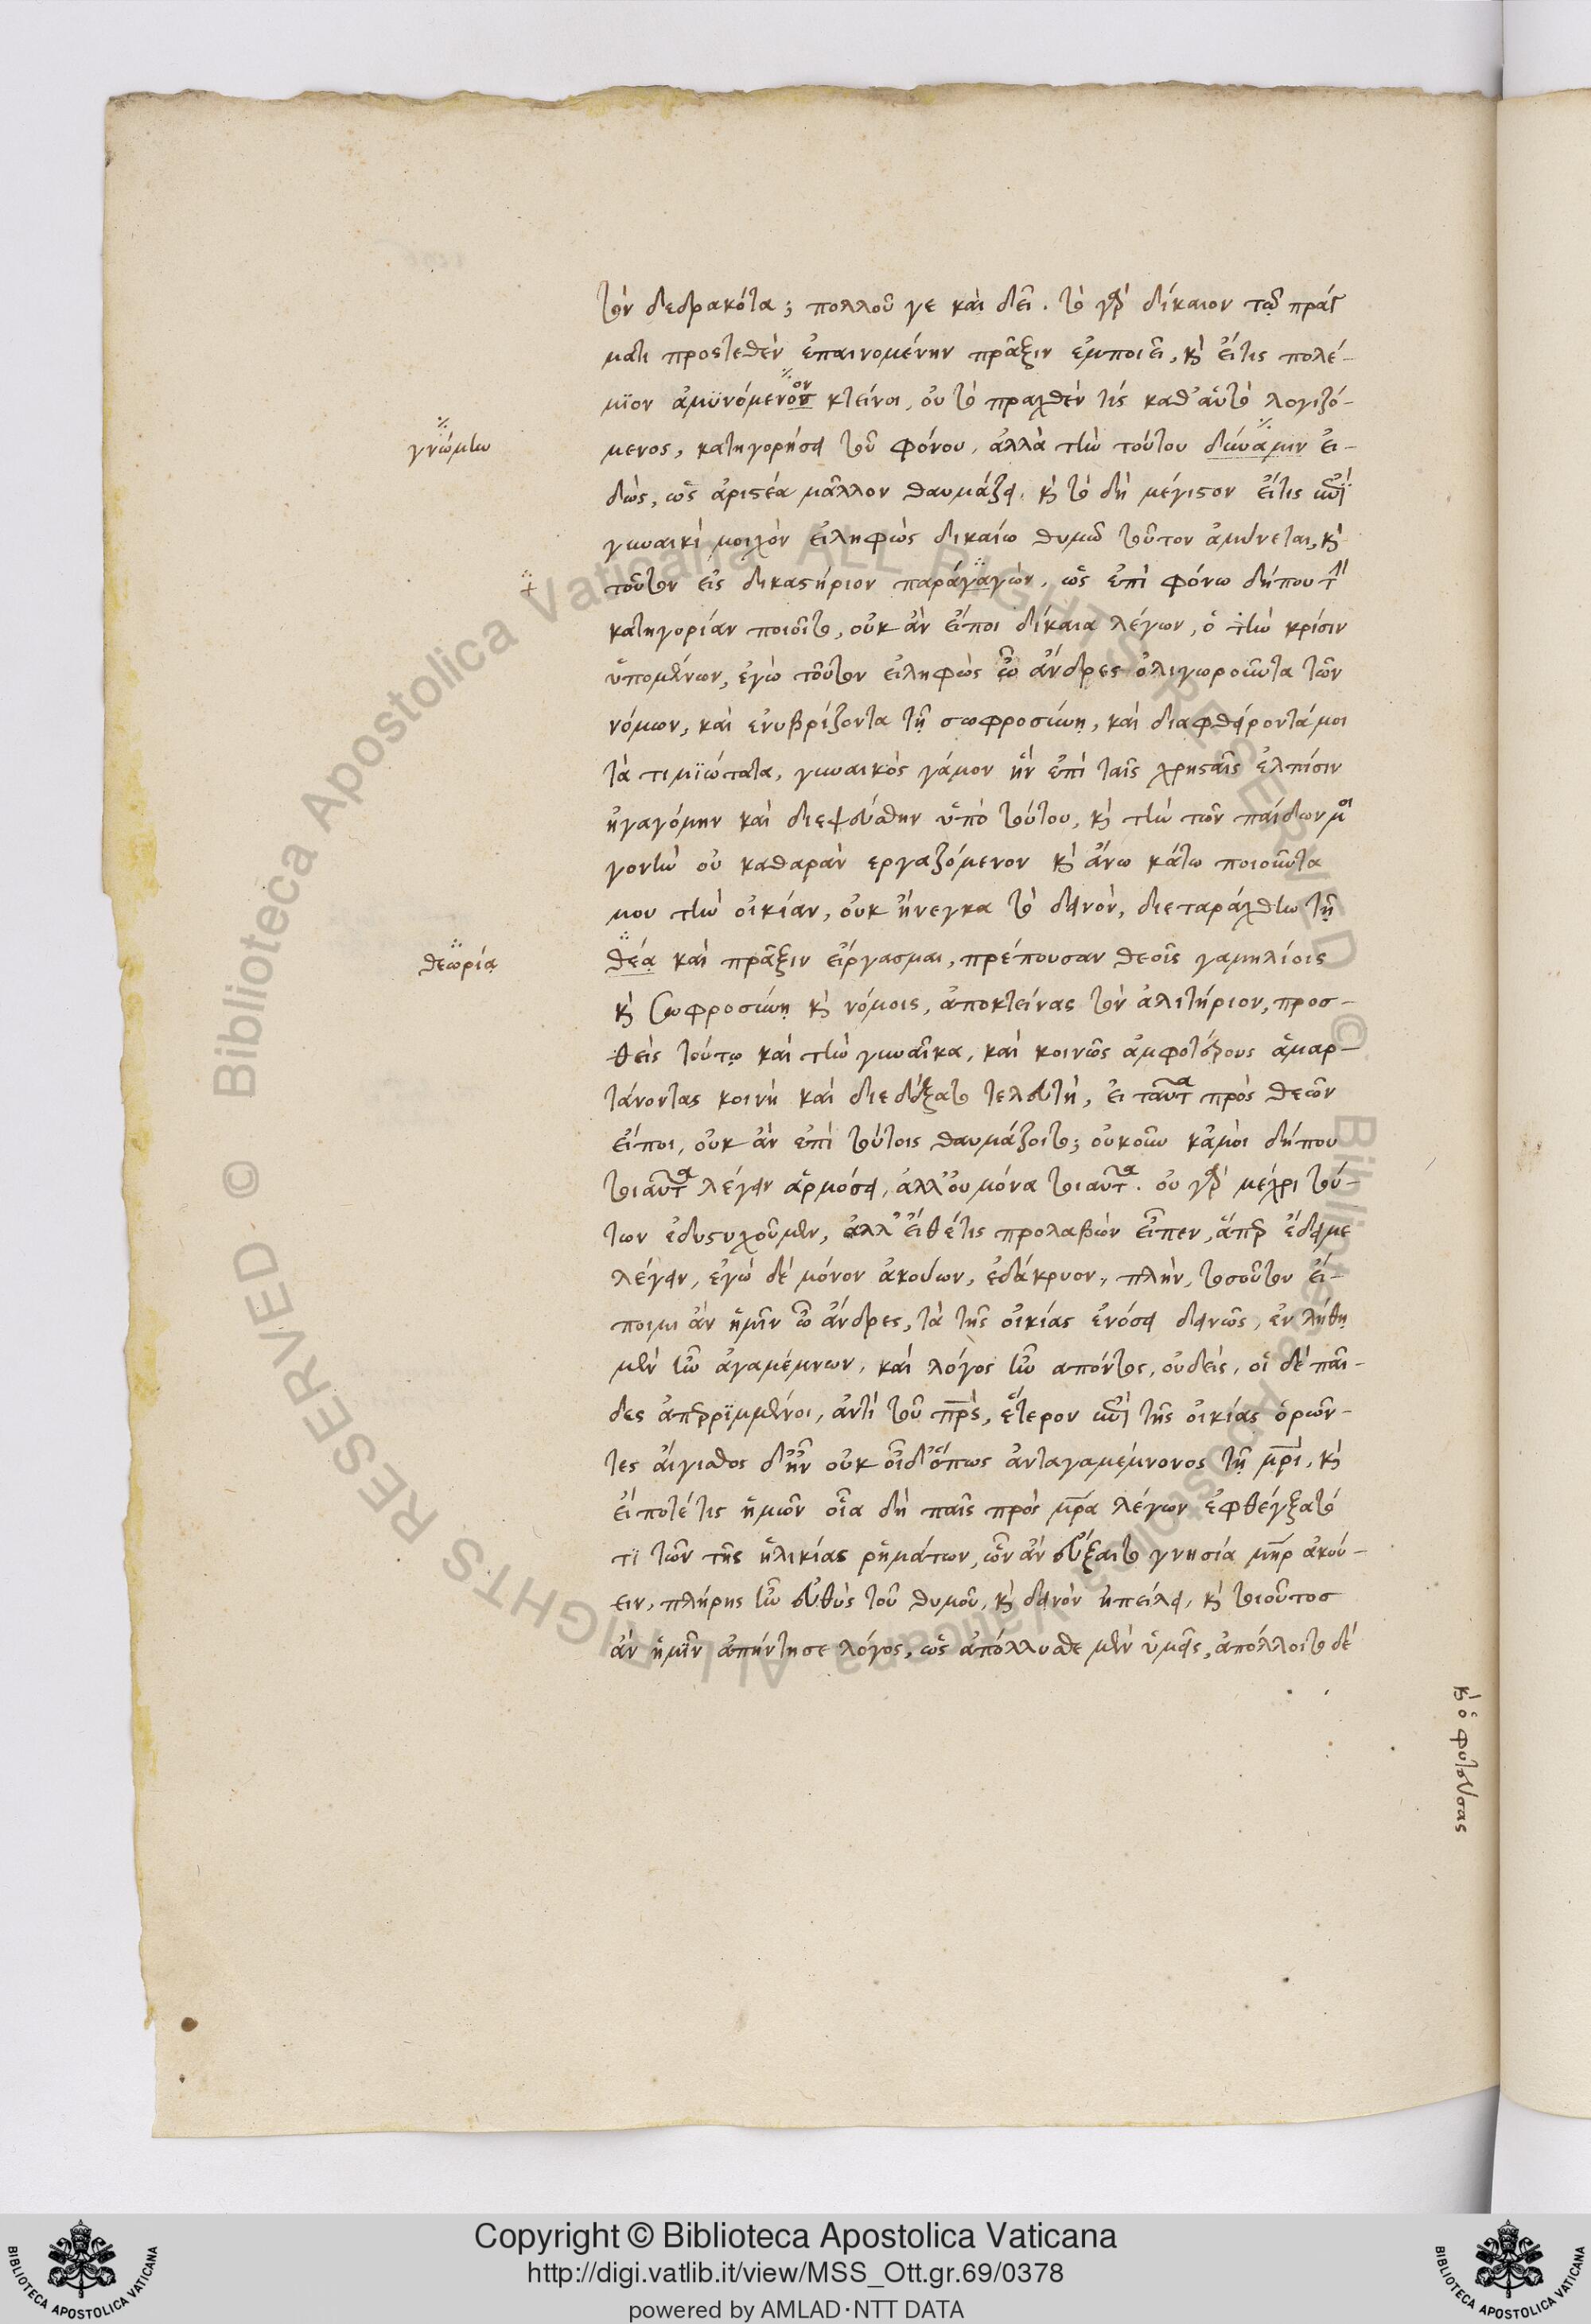 τὸν δεδρακότα; πολλοῦ γε καὶ δεῖ. τὸ γὰρ δίκαιον τῷ πράγ
ματι προστεθὲν ἐπαινουμένην πρᾶξιν ἐμποιεῖ, κ̀ εἴτις πολέ-
μϊον ἀμϋνόμενον κτείνοι, οὐ τὸ πραχθέν τίς καθ' αὑτὸ λογιζό-
γνώμην
μενος, κατηγορήσει τοῦ φόνου, ἀλλὰ τὴν τούτου δύναμιν εἰ-
δὼς, ὡς ἀριστέα μᾶλλον θαυμάζει. κ̀ τὸ δὴ μέγιστον εἴτις ἐπὶ
γυναικὶ μοιχὸν εἰληφὼς δικαίω θυμῶ τοῦτον ἀμύνεται, κ̀
τοῦτον εἰς δικαστήριον παράγαγὼν, ὡς ἐπὶ φόνω δήπου τὴ
κατηγορίαν ποιοῖτο, οὐκ ἂν εἴποι δίκαια λέγων, ὁ τὴν κρίσιν
ὑπομένων, ἐγὼ τοῦτον εἰληφὼς ὦ ἄνδρες ὀλιγωροῦντα τῶν
νόμων, καὶ ἐνυβρίζοντα τῇ σωφροσύνῃ, καὶ διαφθείροντάμοι
τὰ τιμϊώτατα, γυναικὸς γάμον ἣν ἐπὶ ταῖς χρησταῖς ἐλπίσιν
ἠγαγόμην καὶ διεψεύσθην ὑπὸ τούτου, κ̀ τὴν τῶν παίδων μοι
γονὴν οὐ καθαρὰν εργαζόμενον κ̀ ἄνω κάτω ποιοῦντα
μου τὴν οἰκίαν, οὐκ ἤνεγκα τὸ δεινόν, διεταράχθην τῇ
θεωρίᾳ
θέᾳ καὶ πρᾶξιν εἴργασμαι, πρέπουσαν θεοῖς γαμηλίοις
κ̀ σωφροσύνῃ κ̀ νόμοις, ἀποκτείνας τὸν ἀλιτήριον, προσ-
θεὶς τούτῳ καὶ τὴν γυναῖκα, καὶ κοινῶς ἀμφοτέρους ἁμαρ-
τάνοντας κοινὴ καὶ διεδέξατο τελευτή, εἰ ταῦτα πρὸς θεῶν
εἴποι, οὐκ ἂν ἐπὶ τούτοις θαυμάζοιτο; οὐκοῦν κἀμοὶ δήπου
τοιαῦτα λέγειν ἁρμόσει, ἀλλ' οὐ μόνα τοιαῦτα. οὐ γὰρ μέχρι τού-
των ἐδυστυχοῦμεν, ἀλλ' εἴθέ τις προλαβὼν εἶπεν, ἅπερ ἔδειμε
λέγειν, ἐγὼ δὲ μόνον ἀκούων, ἐδάκρυον, πλὴν, τοσοῦτον εἴ-
ποιμι ἂν ἡμῖν ὦ ἄνδρες, τὰ τῆς οἰκίας ἐνόσει δεινῶς, ἐν λήθῃ
μὲν ἦν ἀγαμέμνων, καὶ λόγος ἦν απόντος, οὐδεὶς, οἱ δὲ παῖ-
δες ἀπερρϊμμένοι, ἀντὶ τοῦ πρς, ἕτερον ἐπὶ τῆς οἰκίας ὁρῶν-
τες αἴγισθος δ' ἦν οὐκ οἶδ' ὅπως ἀνταγαμέμνονος τῇ μρὶ, κ̀
εἴ ποτέ τις ἡμῶν οἷα δὴ παῖς πρὸς μρα λέγων ἐφθέγξατό
τϊ τῶν τῆς ἡλικίας ρημάτων, ὧν ἂν εὔξαιτο γνησία μηρ ἀκού-
ειν, πλήρης ἦν εὐθὺς τοῦ θυμοῦ, κ̀ δεινὸν ἠπείλει, κ̀ τοιοῦτος
ἂν ἡμῖν ἀπήντησε λόγος, ὡς ἀπόλλυσθε μὲν ὑμεῖς, ἀπόλλοιτο δὲ
κ̀ ὁ φυτεύσας